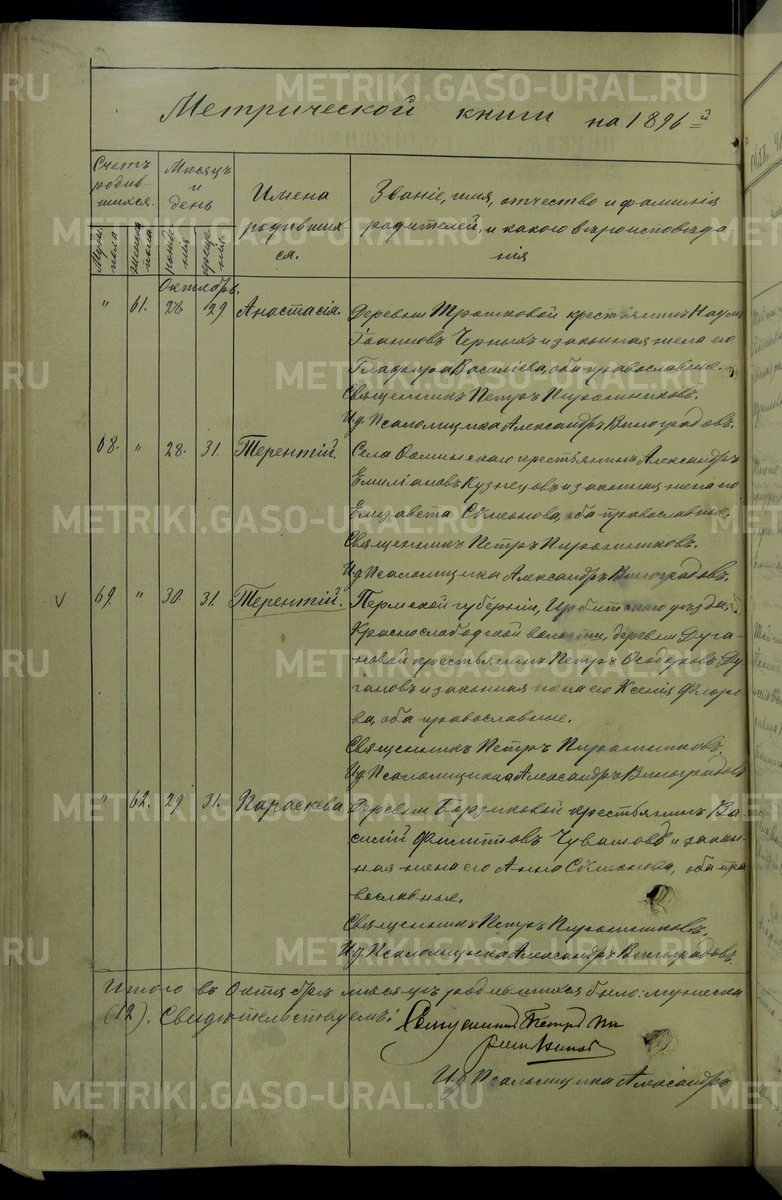 Метрической книги на 1896-й
Счетъ родив-шихся.
Мѣсяцъ и день
Имена родившихся.
Званіе, имя, отчество и фамилія
родителей, и какого вѣроисповѣда-
нія
Муж. пола
Женск. пола
рожде-нія
креще-нія
Октябрь.
" 61. 28 29. Анастасія. Деревни Трошковой крестьянинъ Наумъ
Іоанновъ Черныхъ и законная жена его
Гла͏фира Василіева, оба православные.
Священникъ Петръ
И.д. Псаломщика Александръ Виноградовъ.
68. " 28. 31. Терентій. Села крестьянинъ Александръ
Емиліановъ Кузнецовъ и законная жена его
Елизавета Сѵмеонова, оба православные.
Священникъ Петръ
И.д. Псаломщика Александръ Виноградовъ.
69. " 30. 31. Терентій. Пермской губерніи, Ирбитскаго уѣзда,
Краснослободской волости, деревни Дуга-
новой крестьянинъ Петръ Ѳеодоровъ Ду-
гановъ и законная жена его Ксенія Флоро-
ва, оба православные.
Священникъ Петръ
И.д. Псаломщика Александръ Виноградовъ
" 62. 29. 31. Параскева Деревни крестьянинъ Ва-
силій Филипповъ Чувашовъ и закон-
ная жена его Анна Сѵмеонова, оба пра-
вославные.
Священникъ Петръ
И.д. Псаломщика Александръ Виноградовъ.
Итого въ Октябрѣ мѣсяцѣ родившихся было: мужеска
(12). Свидѣтельствуемъ: Священникъ Петръ
И.д. Псаломщика Александръ
METRIKI.GASO-URAL.RU